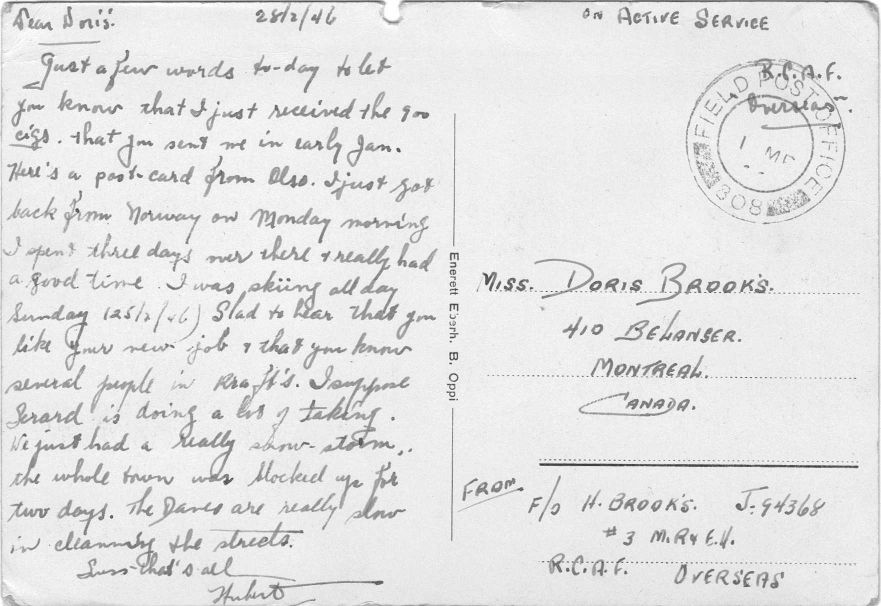 Dear Doris. 28/2/46
Just a few words to-day to let
you know that I just received the 900
cigs. that you sent me in early Jan.
Here's a post-card from Olso. I just got
back from Norway on Monday morning
I spent three days over there & really had
a good time. I was skiing all day
Sunday (25/2/46) Glad to hear that you
like your new job & that you know
several people in Kraft's. I suppose
Gerard is doing a lot of talking.
We just had a really snow-storm,.
the whole town was blocked up for
two days. The Danes are really slow
in cleanning the streets.
Guess that's all
Hubert
Enerett Eberh. B. Oppi
on ACTIVE SERVICE
R.C.A.F.
Overseas.
FIELD POST OFFICE
1
808
MISS. DORIS BROOK'S.
410 BELANGER.
MONTREAL.
CANADA.
FROM
F/O H. BROOK'S. J-94368
#3 M.R & E.U.
R.C.A.F. OVERSEAS